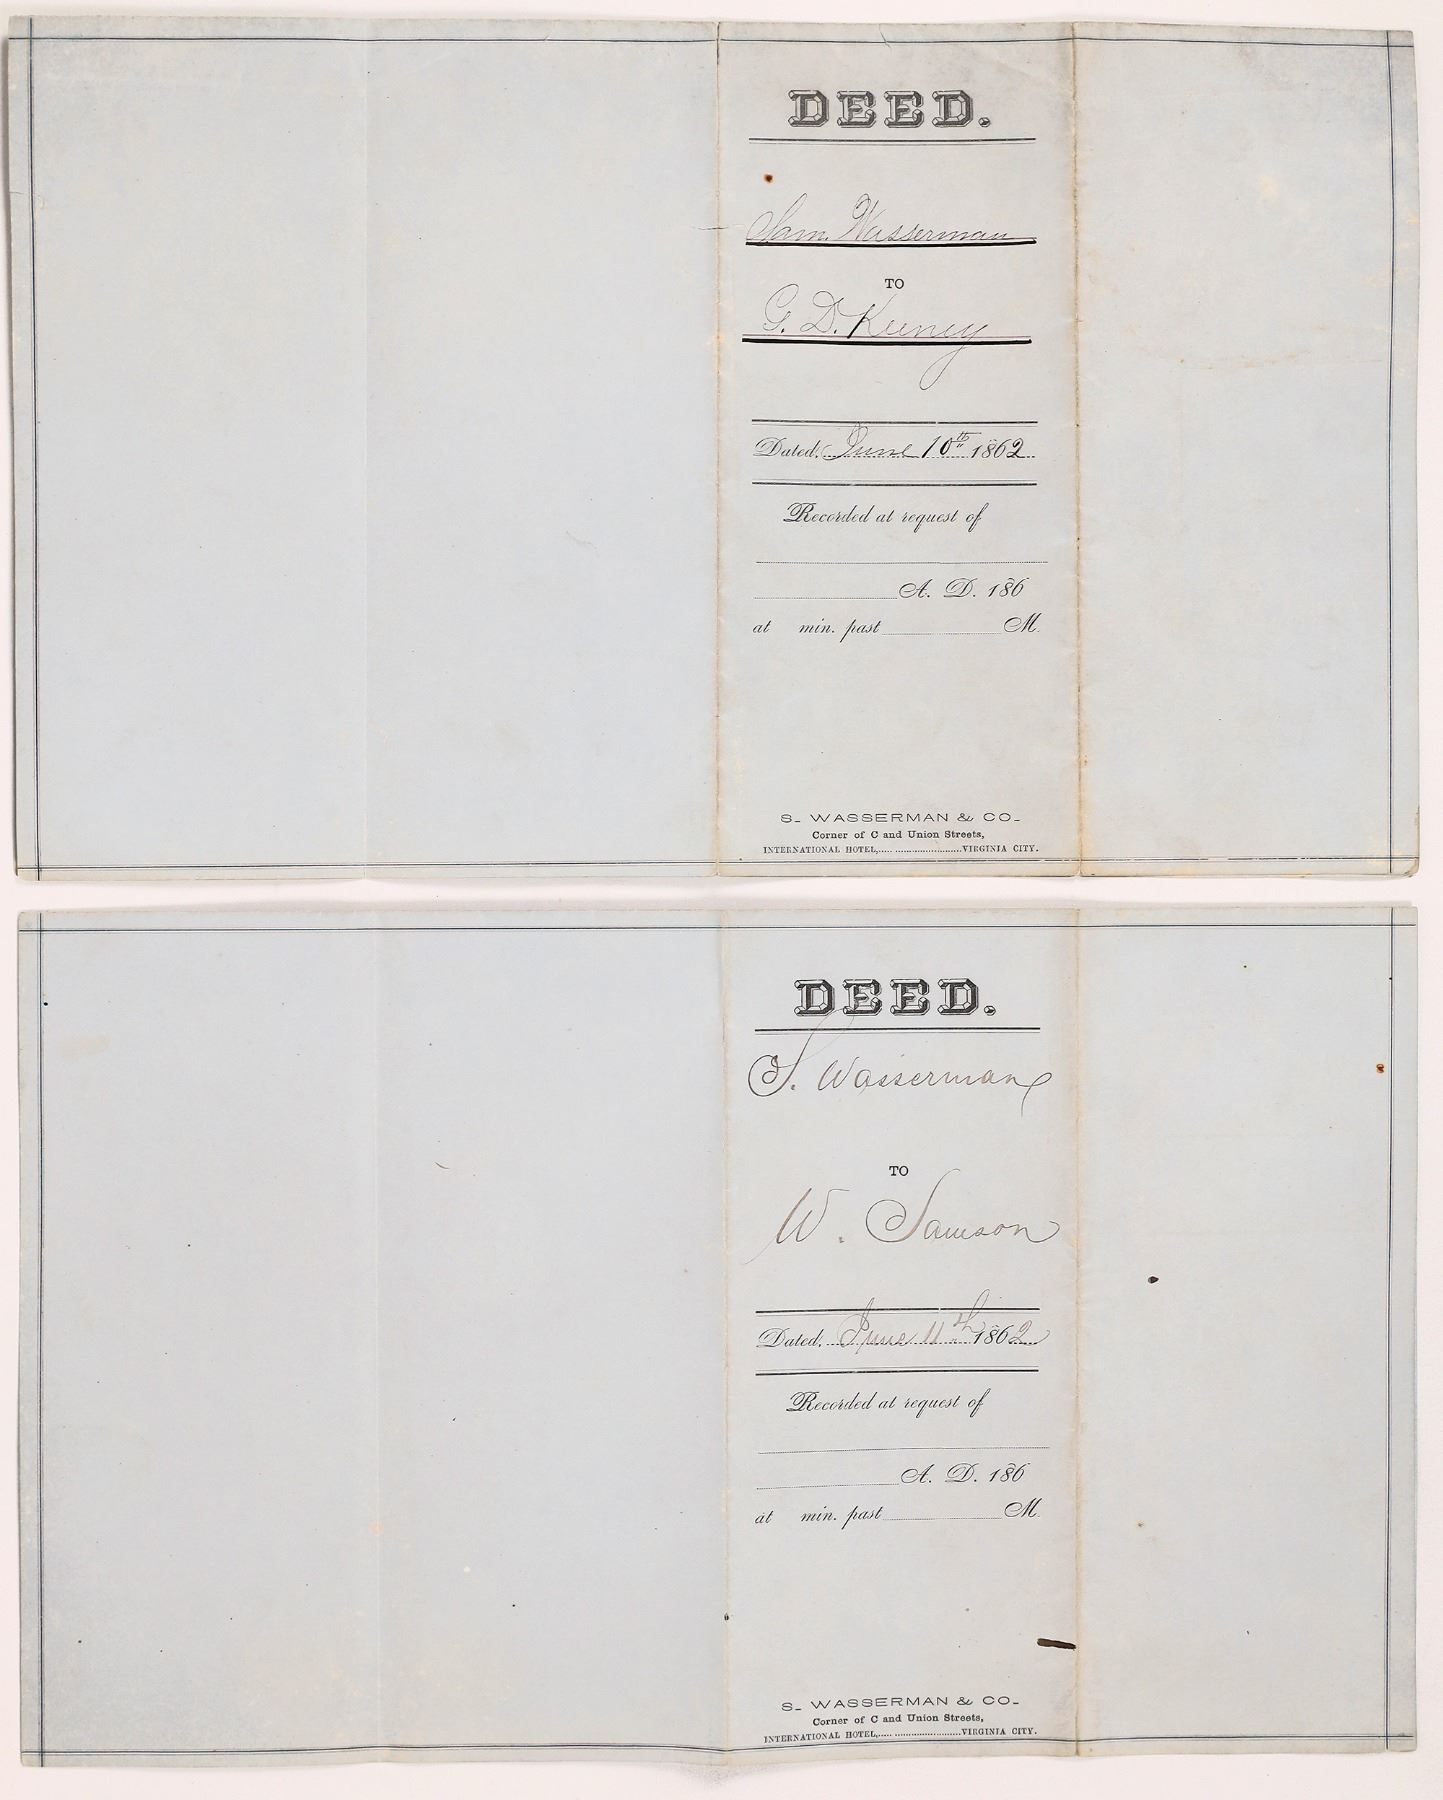 DEED.
Sam. Wasserman
TO
G. D. Keeney
Dated, June 10th 1862
Recorded at request of
A. D. 186
at min. past M.
S. WASSERMAN & CO.
Corner of C and Union Streets,
INTERNATIONAL HOTEL,........................VIRGINIA CITY.
DEED.
S. Wasserman
TO
W. Samson
Dated, June 11th 1862
Recorded at request of
A. D. 186
at min. past M.
S. WASSERMAN & CO.
Corner of C and Union Streets,
INTERNATIONAL HOTEL,........................VIRGINIA CITY.